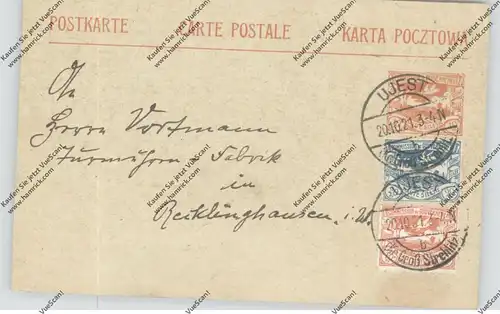 POSTKARTE CARTE POSTALE KARTA POCZTOWA
An
Herrn Vortmann
Turmuhren Fabrik
in
Recklinghausen i. W.
UJEST
20.10.21. 3-4 N
b
UJEST
b
Bz. Groß Strehlitz
Kaufen Sie jetzt VueScan!
www.hamrick.com